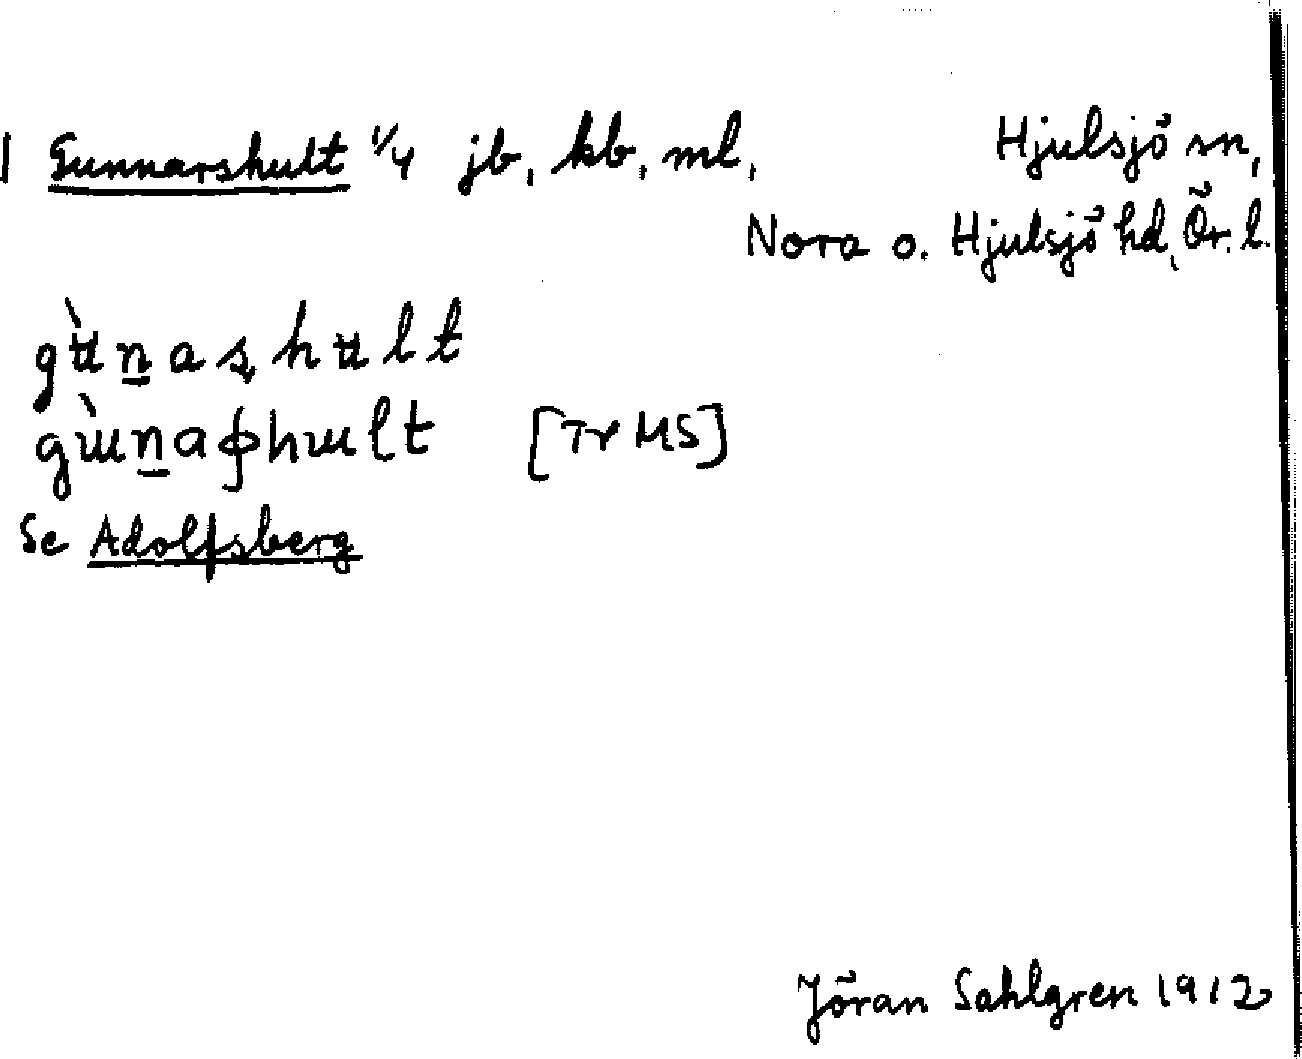 1 Gunnarshult 1/4 jb, kb, ml, Hjulsjö sn,
Nora o. Hjulsjö hd, Ör. l.
[Tr MS]
Se Adolfsberg
Jöran Sahlgren 1912